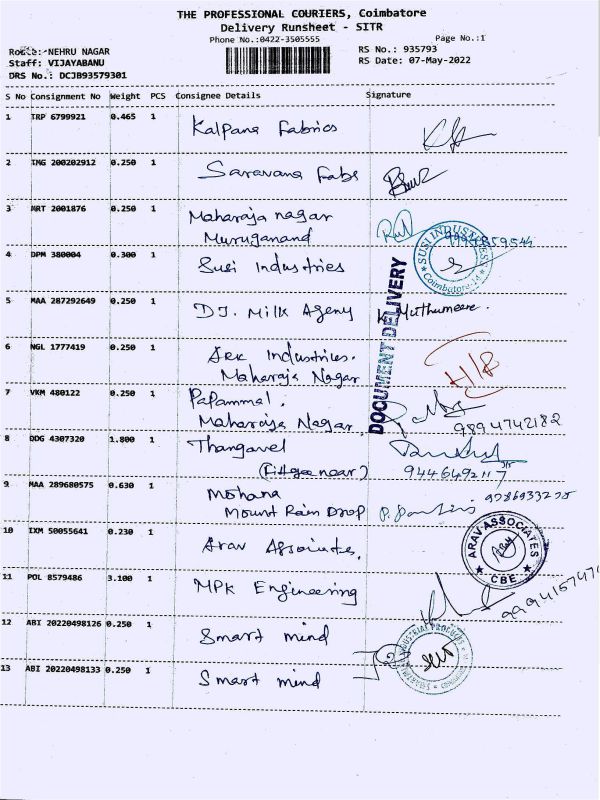 THE PROFESSIONAL COURIERS, Coimbatore
Delivery Runsheet - SITR
Phone No.:0422-3505555 Page No.:1
Route: NEHRU NAGAR RS No.: 935793
Staff: VIJAYABANU RS Date: 07-May-2022
DRS No.: DCJB93579301
S No Consignment No Weight PCS Consignee Details Signature
1 TRP 6799921 0.465 1 Kalpana Fabrics
2 TMG 200202912 0.250 1 Saravana Fabs
3 MRT 2001876 0.250 1 Maharaja nagar
Muruganand
4 DPM 380004 0.300 1 Susi Industries
SUSI INDUSTRIES
Coimbatore
5 MAA 287292649 0.250 1 DJ. Milk Ageny K. Muthumeere.
DOCUMENT DELIVERY
6 NGL 1777419 0.250 1 Industries.
Maharaja Nagar
7 VKM 480122 0.250 1 Papammal.
Maharaja Nagar, 9894742182
8 DDG 4307320 1.800 1 Thangavel
near) 9446492117
9 MAA 289680575 0.630 1 Mohana
Mount Rain Drop
10 IXM 50055641 0.230 1 Arav Associates,
ARAV ASSOCIATES
CBE
11 POL 8579486 3.100 1 MPK Engineering
12 ABI 20220498126 0.250 1 Smart mind
13 ABI 20220498133 0.250 1 Smart mind